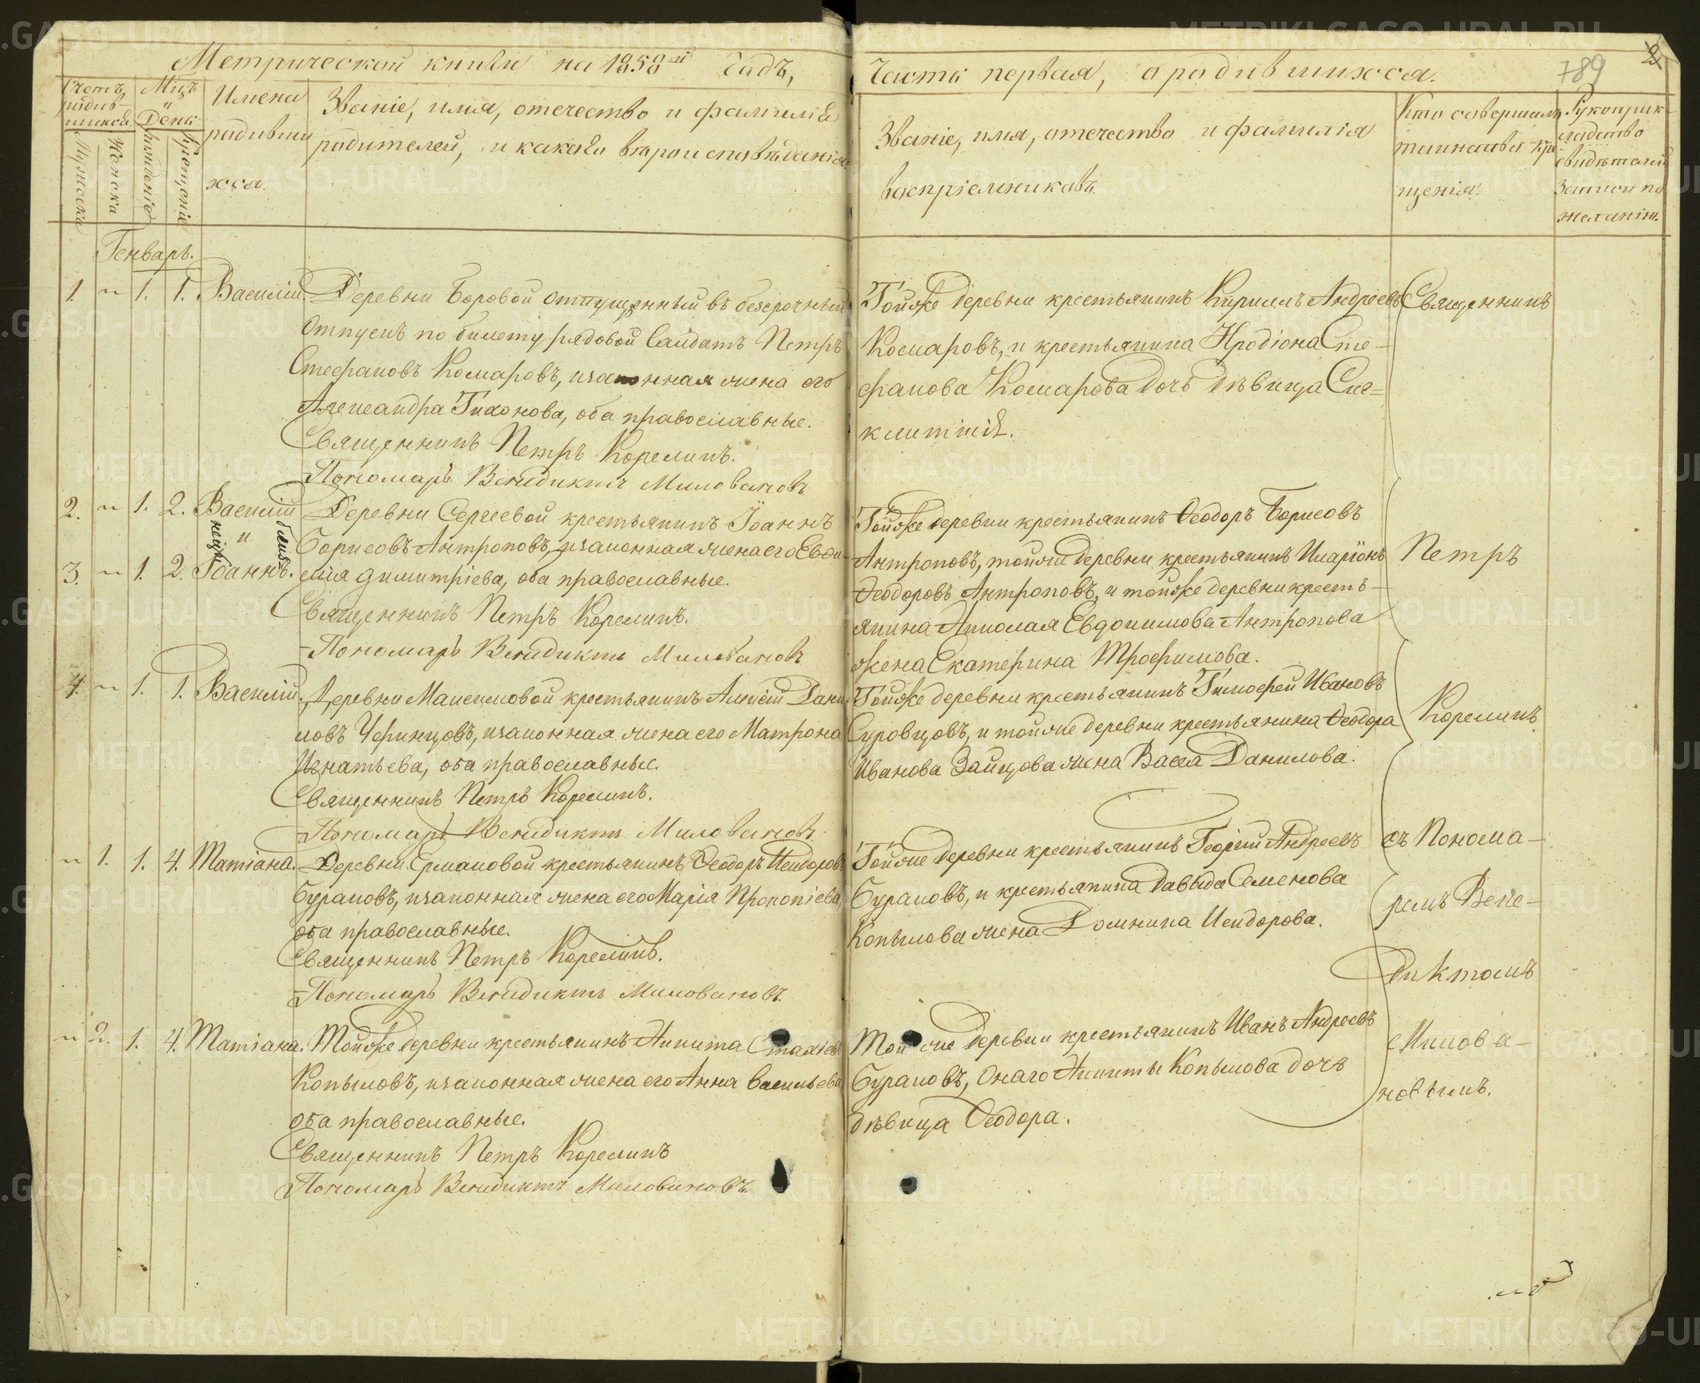 Метрической книги на 1858й годъ,
Часть первая, о родившихся.
789
Счетъ родив-шихся
Мужеска
Женска
Мцъ и День
рожденія
крещенія
Имена родивших хся.
Званіе, имя, отечество и фамилія
родителей, и какого вѣроисповѣданія
Званіе, имя, отечество и фамилія
воспріемниковъ.
Кто совершалъ
таинство кре-
щенія.
Рукоприк-
ладство
свидѣтелей
записи по
желанію.
Генварь.
1. " 1. 1. Василій. Деревни Боровой отпущенный въ безсрочный
отпускъ по билету рядовой Солдатъ Петръ
Стефановъ Комаровъ, и законная жена его
Александра Тихонова, оба православные.
Священникъ Петръ Корелинъ.
Пономарь Венедиктъ Миловановъ
Тойже деревни крестьянинъ Кириллъ Андреевъ
Комаровъ, и крестьянина Иродіона Сте-
фанова Комарова дочь дѣвица Син-
клитикія.
2. " 1. 2. Василій
"
близнецы
3. " 1. 2. Іоаннъ.
Деревни Сергеевой крестьянинъ Іоаннъ
Борисовъ Антроповъ, и законная жена его Евдо-
кія Димитріева, оба православные.
Священникъ Петръ Корелинъ.
Пономарь Венедиктъ Миловановъ
Тойже деревни крестьянинъ Ѳеодоръ Борисовъ
Антроповъ, тойже деревни крестьянинъ Иларіонъ
Ѳеодоровъ Антроповъ, и тойже деревни кресть-
янина Николая Евдокимова Антропова
жена Екатерина Трофимова.
4. " 1. 1. Василій. Деревни Макsímовой крестьянинъ Алексѣй Дани
ловъ Черемцовъ, и законная жена его Матрона
Игнатьева, оба православные.
Священникъ Петръ Корелинъ.
Пономарь Венедиктъ Миловановъ
Тойже деревни крестьянинъ Тимофей Ивановъ
Суровцовъ, и тойже деревни крестьянина Ѳеодора
Иванова Зайцова жена Васса Данилова.
" 1. 1. 4. Татіана. Деревни Ермаковой крестьянинъ Ѳеодоръ Исидоровъ
Бурановъ, и законная жена его Марія Прокопіева,
оба православные.
Священникъ Петръ Корелинъ.
Пономарь Венедиктъ Миловановъ.
Тойже деревни крестьянинъ Георгій Андреевъ
Бурановъ, и крестьянина Давыда Семенова
Копылова жена Домника Исидорова.
" 2. 1. 4. Татіана. Тойже деревни крестьянинъ Никита
Копыловъ, и законная жена его Анна Васильева
оба православные.
Священникъ Петръ Корелинъ
Пономарь Венедиктъ Миловановъ
Тойже деревни крестьянинъ Иванъ Андреевъ
Бурановъ, Онаго Никиты Копылова дочь
дѣвица Ѳеодора.
Священникъ
Петръ
Корелинъ
съ Понома-
ремъ Вене-
диктомъ
Милова-
новымъ.
METRIKI.GASO-URAL.RU